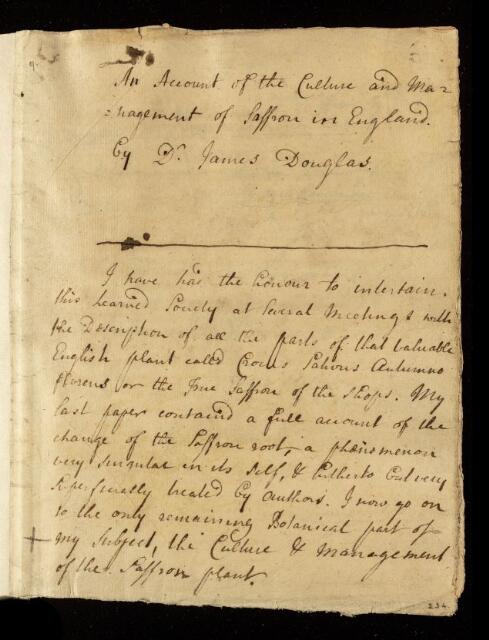 An Account of the Culture and Ma=
=nagement of Saffron in England.
By Dr. James Douglas.
I have had the honour to intertain
this Learned Society at several Meetings with
the Description of all the parts of that valuable
English plant called Crocus Sativus Autumno
florens or the True Saffron of the shops. My
last paper containd a full account of the
change of the Saffron root, a phænomenon
very singular in its self, & hitherto but very
superficially treated by authors. I now go on
to the only remaining Botanical part of
my Subject, the Culture & Management
of the Saffron plant.
234